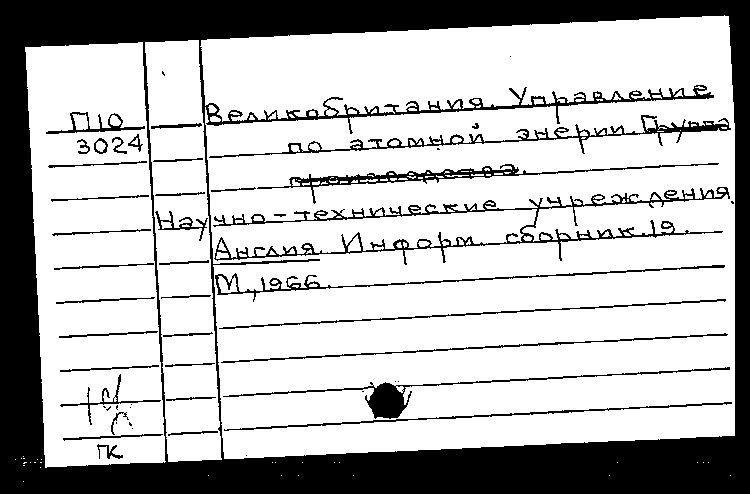 П10
3024
Великобритания. Управление
по атомной энерии. Группа
производства.
Научно-технические учреждения
Англия. Информ. сборник. 19.
М., 1966.
ГК